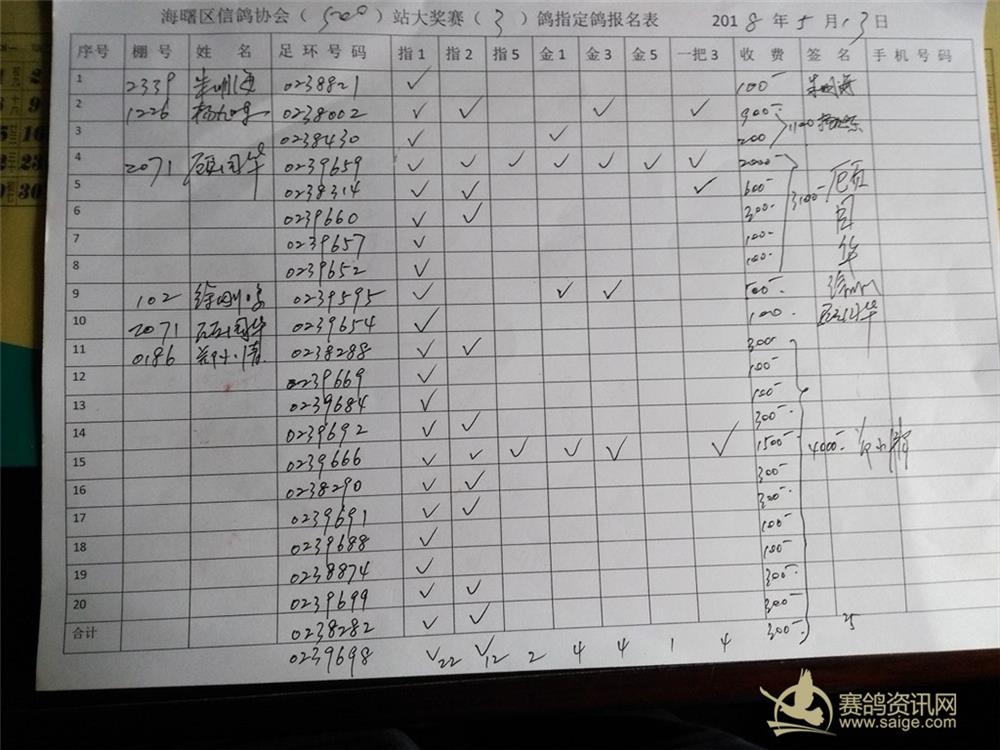 海曙区信鸽协会（500）站大奖赛（3）鸽指定鸽报名表 2018年5月13日
序号 棚号 姓名 足环号码 指1 指2 指5 金1 金3 金5 一把3 收费 签名 手机号码
1 2339 0238821 ✓ 100-
2 1226 0238002 ✓ ✓ ✓ ✓ 900-
3 0238430 ✓ ✓ 200 1100
4 2071 顾国华 0239659 ✓ ✓ ✓ ✓ ✓ ✓ ✓ 2000-
5 0238314 ✓ ✓ ✓ 600- 3100- 顾
6 0239660 ✓ ✓ 300- 国
7 0239657 ✓ 100- 华
8 0239652 ✓ 100-
9 102 0239595 ✓ ✓ ✓ 500-
10 2071 顾国华 0239654 ✓ 100. 顾国华
11 0186 0238288 ✓ ✓ 300
12 0239669 ✓ 100-
13 0239684 ✓ 100-
14 0239692 ✓ ✓ 300-
15 0239666 ✓ ✓ ✓ ✓ ✓ ✓ 1500- 4000-
16 0238290 ✓ ✓ 300-
17 0239691 ✓ ✓ 300-
18 0239688 ✓ 100-
19 0238874 ✓ 100-
20 0239699 ✓ ✓ 300-
合计 0238282 ✓ ✓ 300-
0239698 ✓ 22 ✓ 12 2 4 4 1 4 300- 25
赛鸽资讯网
www.saige.com